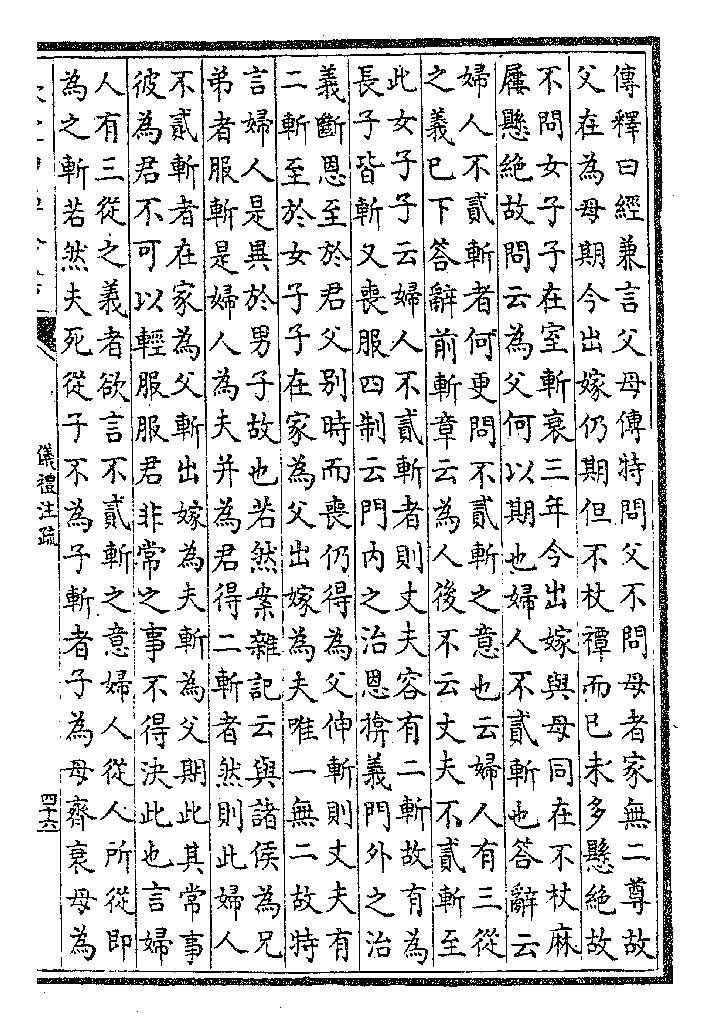 傳釋曰經兼言父母傳特問父不問母者家無二尊故
父在為母期今出嫁仍期但不杖禫而已未多懸絶故
不問女子子在室斬衰三年今出嫁與母同在不杖麻
屨懸絶故問云為父何以期也婦人不貳斬也答辭云
婦人不貳斬者何更問不貳斬之意也云婦人有三從
之義已下答辭前斬章云為人後不云丈夫不貳斬至
此女子子云婦人不貳斬者則丈夫容有二斬故有為
長子皆斬又喪服四制云門内之治恩揜義門外之治
義斷恩至於君父别時而喪仍得為父伸斬則丈夫有
二斬至於女子子在家為父出嫁為夫唯一無二故特
言婦人是異於男子故也若然案雜記云與諸侯為兄
弟者服斬是婦人為夫并為君得二斬者然則此婦人
不貳斬者在家為父斬出嫁為夫斬為父期此其常事
彼為君不可以輕服服君非常之事不得決此也言婦
人有三從之義者欲言不貳斬之意婦人從人所從即
為之斬若然夫死從子不為子斬者子為母齊衰母為
儀禮注疏
四十六